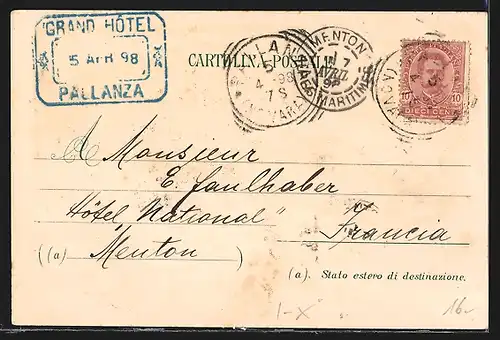 GRAND HÔTEL
5 APR 98
PALLANZA
CARTOLINA POSTALE
PALLANZA
5
4 98
1 S
MENTON
7
AVRIL
98
ALPES MARITIMES
10
A Monsieur
E. Faulhaber
Hôtel National"
Menton
Francia
((a)
)
(a). Stato estero di destinazione.
I-X
16.-